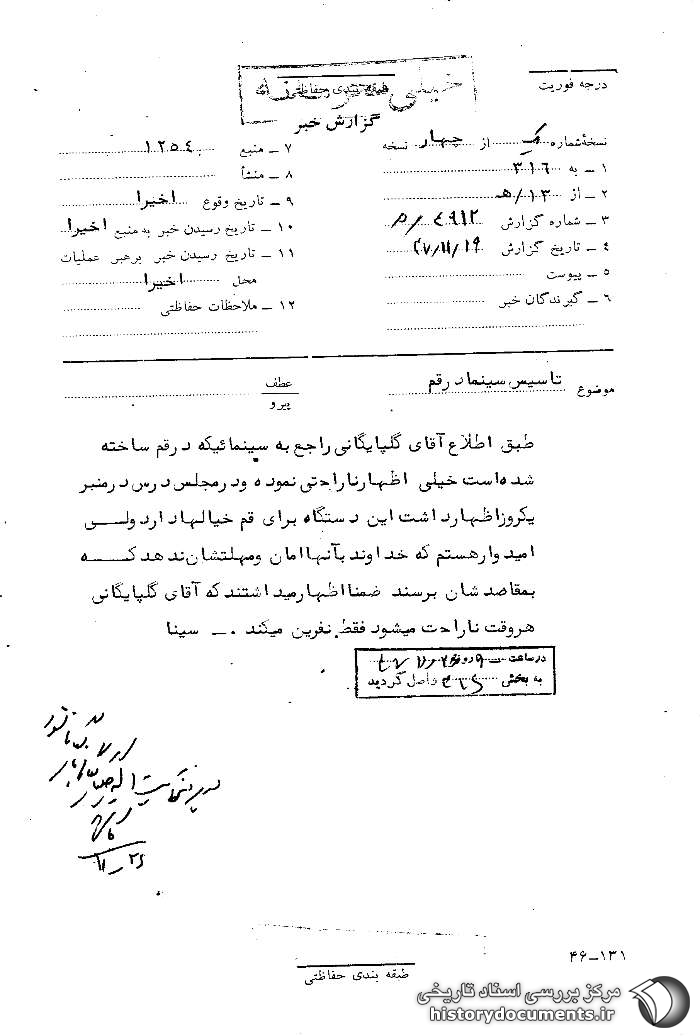 درجه فوریت
خیلی محرمانه
طبقه بندی حفاظتی
گزارش خبر
نسخهٔ شماره یک از چهار نسخه
۱ ـ به ۳۱۶
۲ ـ از ۱۳/هـ
۳ ـ شماره گزارش
۴ ـ تاریخ گزارش ۴۷/۱۱/۱۹
۵ ـ پیوست
۶ ـ گیرندگان خبر
۷ ـ منبع ۱۲۵۴
۸ ـ منشأ
۹ ـ تاریخ وقوع اخیرا
۱۰ ـ تاریخ رسیدن خبر به منبع اخیرا
۱۱ ـ تاریخ رسیدن خبر برهبر عملیات
محل اخیرا
۱۲ ـ ملاحظات حفاظتی
موضوع تاسیس سینما در قم
عطف
پیرو
طبق اطلاع آقای گلپایگانی راجع به سینمائیکه در قم ساخته
شده است خیلی اظهار ناراحتی نموده و در مجلس درس در منبر
یکروز اظهار داشت این دستگاه برای قم خیالها دارد ولی
امیدوار هستم که خداوند بآنها امان ومهلتشان ندهد که
بمقاصدشان برسند ضمنا اظهار میداشتند که آقای گلپایگانی
هر وقت ناراحت میشود فقط نفرین میکند .ـ سینا
در ساعت
به بخش ۳۱۶ واصل گردید
۱۳۱ــ۴۶
طبقه بندی حفاظتی
مرکز بررسی اسناد تاریخی
historydocuments.ir